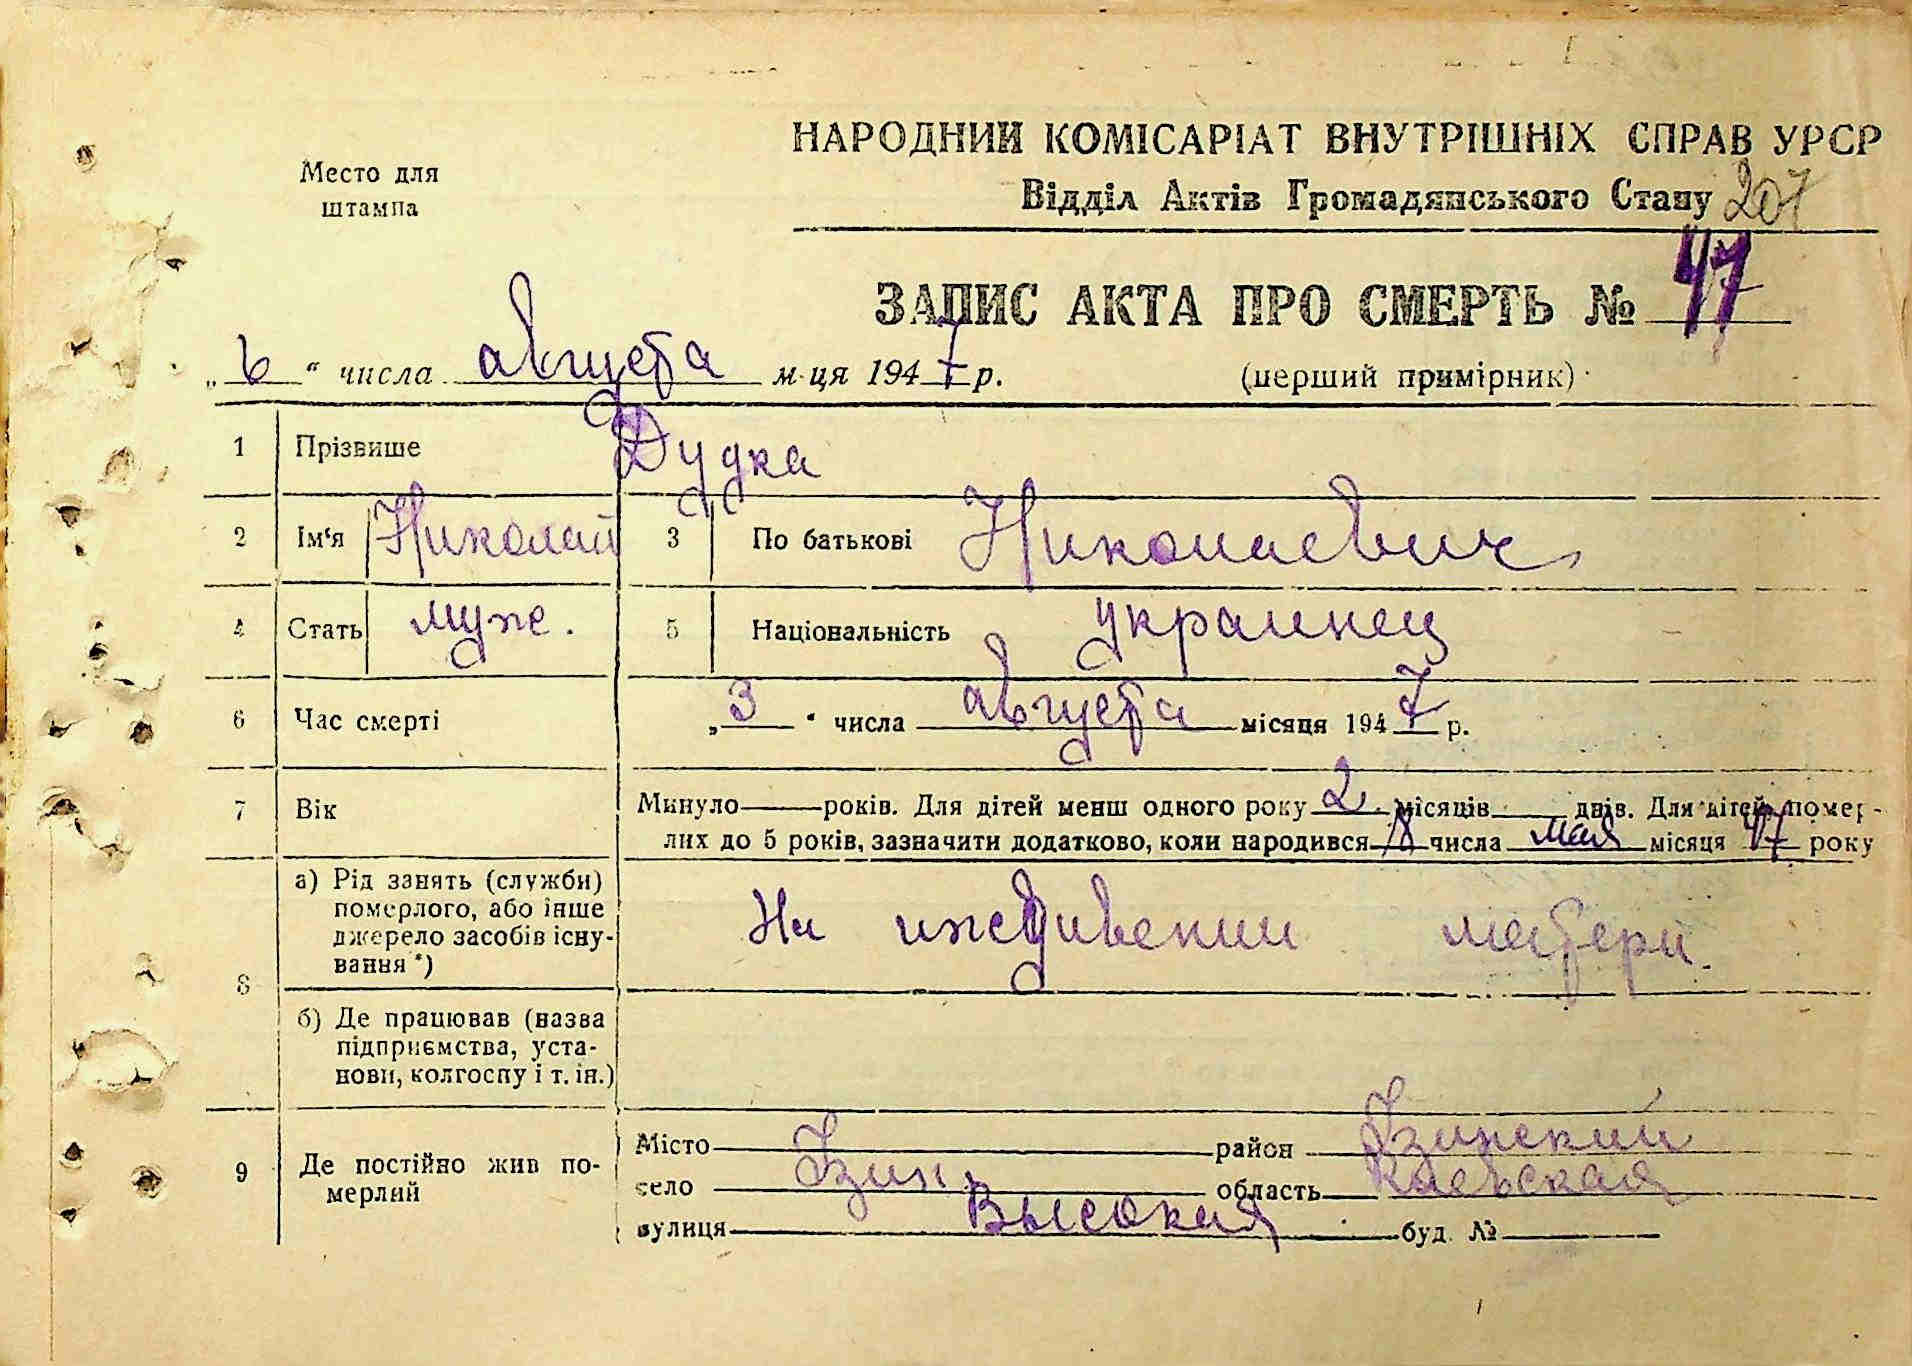 НАРОДНИЙ КОМІСАРІАТ ВНУТРІШНІХ СПРАВ УРСР
Место для
штампа
Відділ Актів Громадянського Стану 207
ЗАПИС АКТА ПРО СМЕРТЬ № 47
„6“ числа августа м-ця 1947 р. (перший примірник)
1 Прізвише Дудка
2 Ім'я Николай 3 По батькові Николаевич
4 Стать муже. 5 Національність украинец
6 Час смерті „3“ числа августа місяця 1947 р.
7 Вік Минуло — років. Для дітей менш одного року 2 місяців — днів. Для дітей, помер-
лих до 5 років, зазначити додатково, коли народився 18 числа мая місяця 47 року
8 а) Рід занять (служби)
померлого, або інше
джерело засобів існу-
вання*) На иждивении матери.
б) Де працював (назва
підприємства, уста-
нови, колгоспу і т. ін.)
9 Де постійно жив по-
мерлий
Місто район Узинский
село Узин, область Киевская
вулиця Высокая буд. №